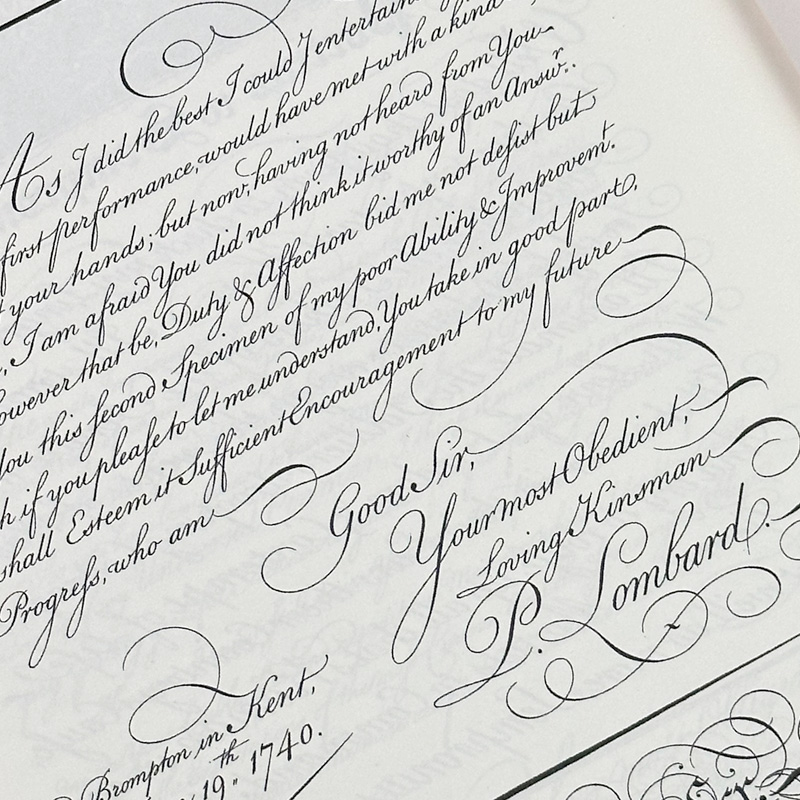 As I did the best I could I entertain
first performance, would have met with a kind
your hands; but now, having not heard from You
I am afraid You did not think it worthy of an Answʳ.
owever that be, Duty & Affection bid me not desist but
You this second Specimen of my poor Ability & Improvemᵗ.
if you pleaſe to let me understand, You take in good part,
shall Esteem it Sufficient Encouragement to my future
Progreſs, who am
Good Sir,
Your most Obedient,
Loving Kinsman
P. Lombard.
Brompton in Kent,
19ᵗʰ 1740.